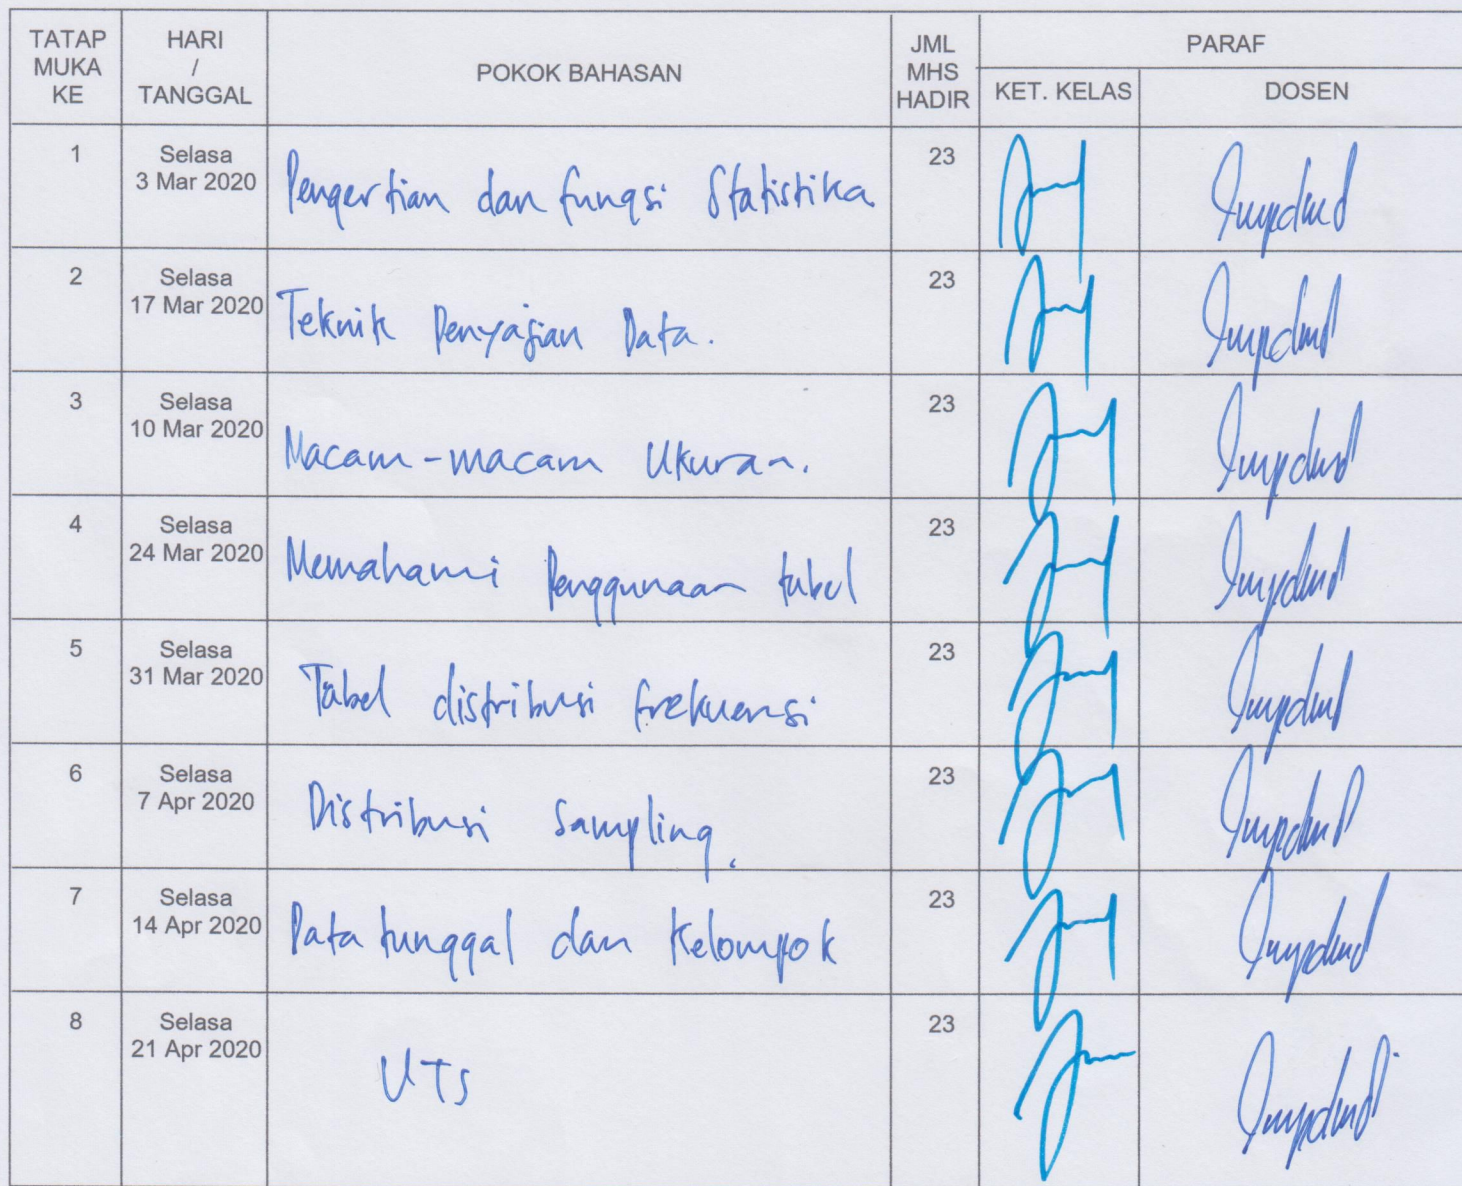 TATAP MUKA KE
HARI / TANGGAL
POKOK BAHASAN
JML MHS HADIR
PARAF
KET. KELAS
DOSEN
1
Selasa
3 Mar 2020
Pengertian dan fungsi Statistika
23
2
Selasa
17 Mar 2020
Teknik Penyajian Data.
23
3
Selasa
10 Mar 2020
Macam-macam Ukuran.
23
4
Selasa
24 Mar 2020
Memahami Penggunaan tabel
23
5
Selasa
31 Mar 2020
Tabel distribusi frekuensi
23
6
Selasa
7 Apr 2020
Distribusi Sampling.
23
7
Selasa
14 Apr 2020
Data tunggal dan Kelompok
23
8
Selasa
21 Apr 2020
UTS
23